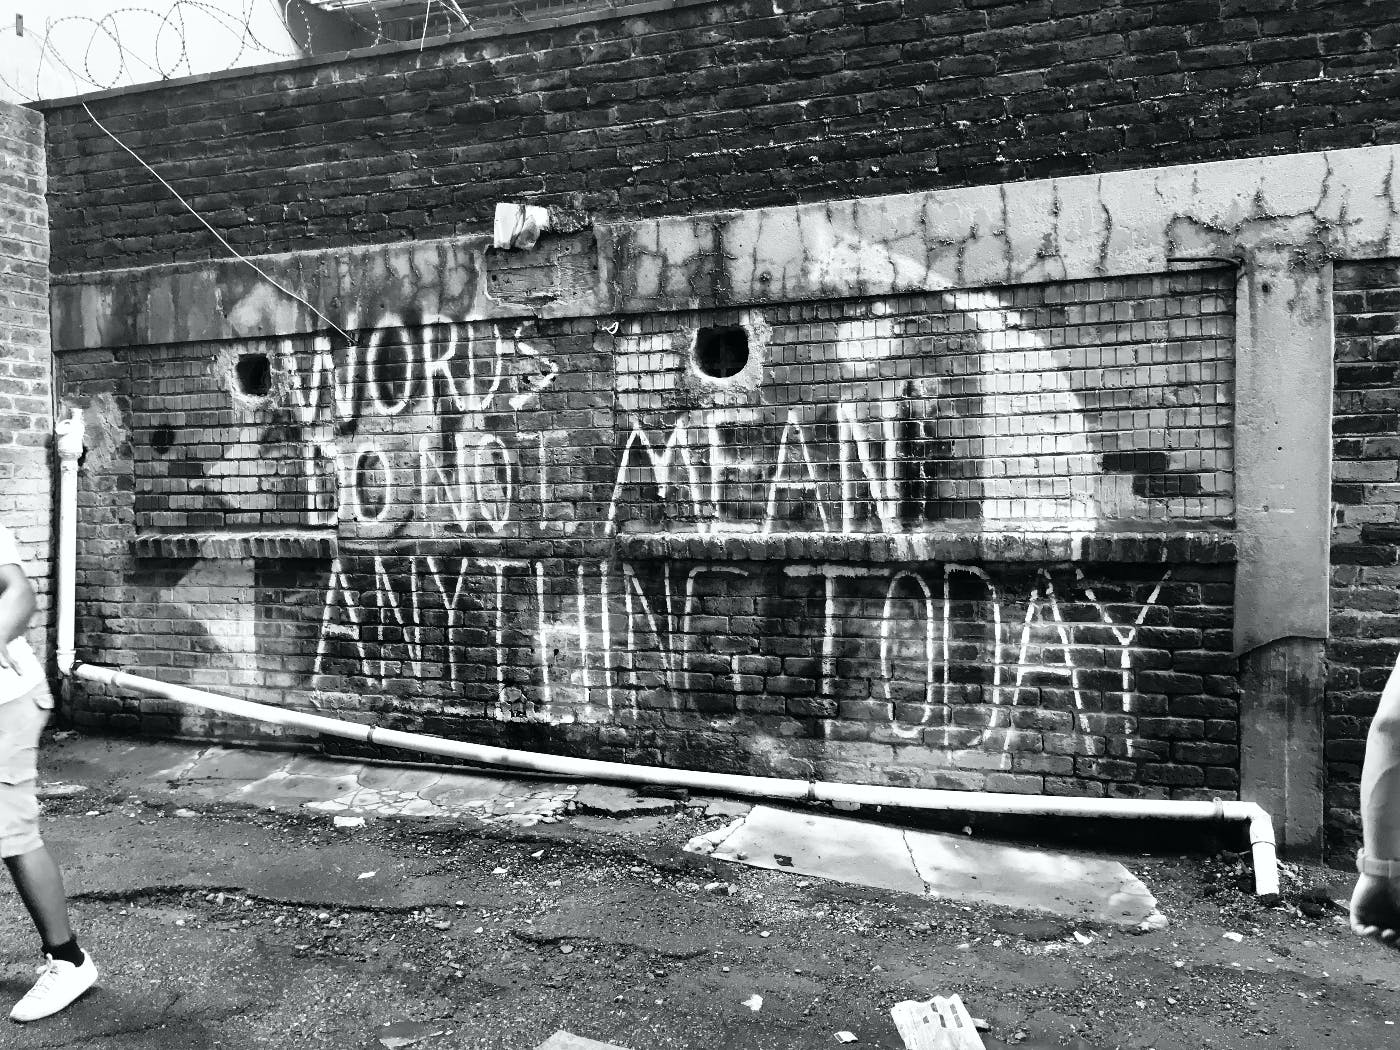 WORDS
DO NOT MEAN
ANYTHING TODAY